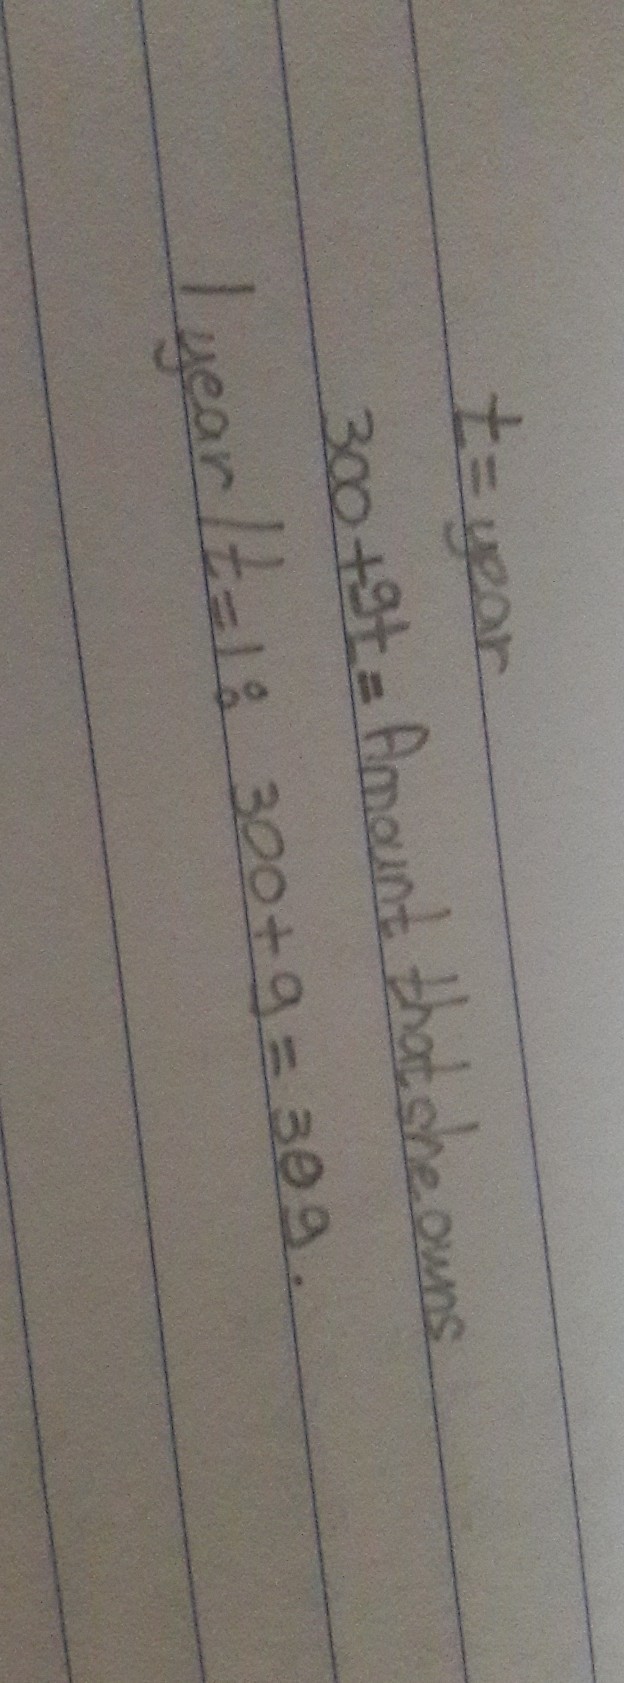 t = year
300 + 9t = Amount that she owns
1 year / t = 1: 300 + 9 = 309.